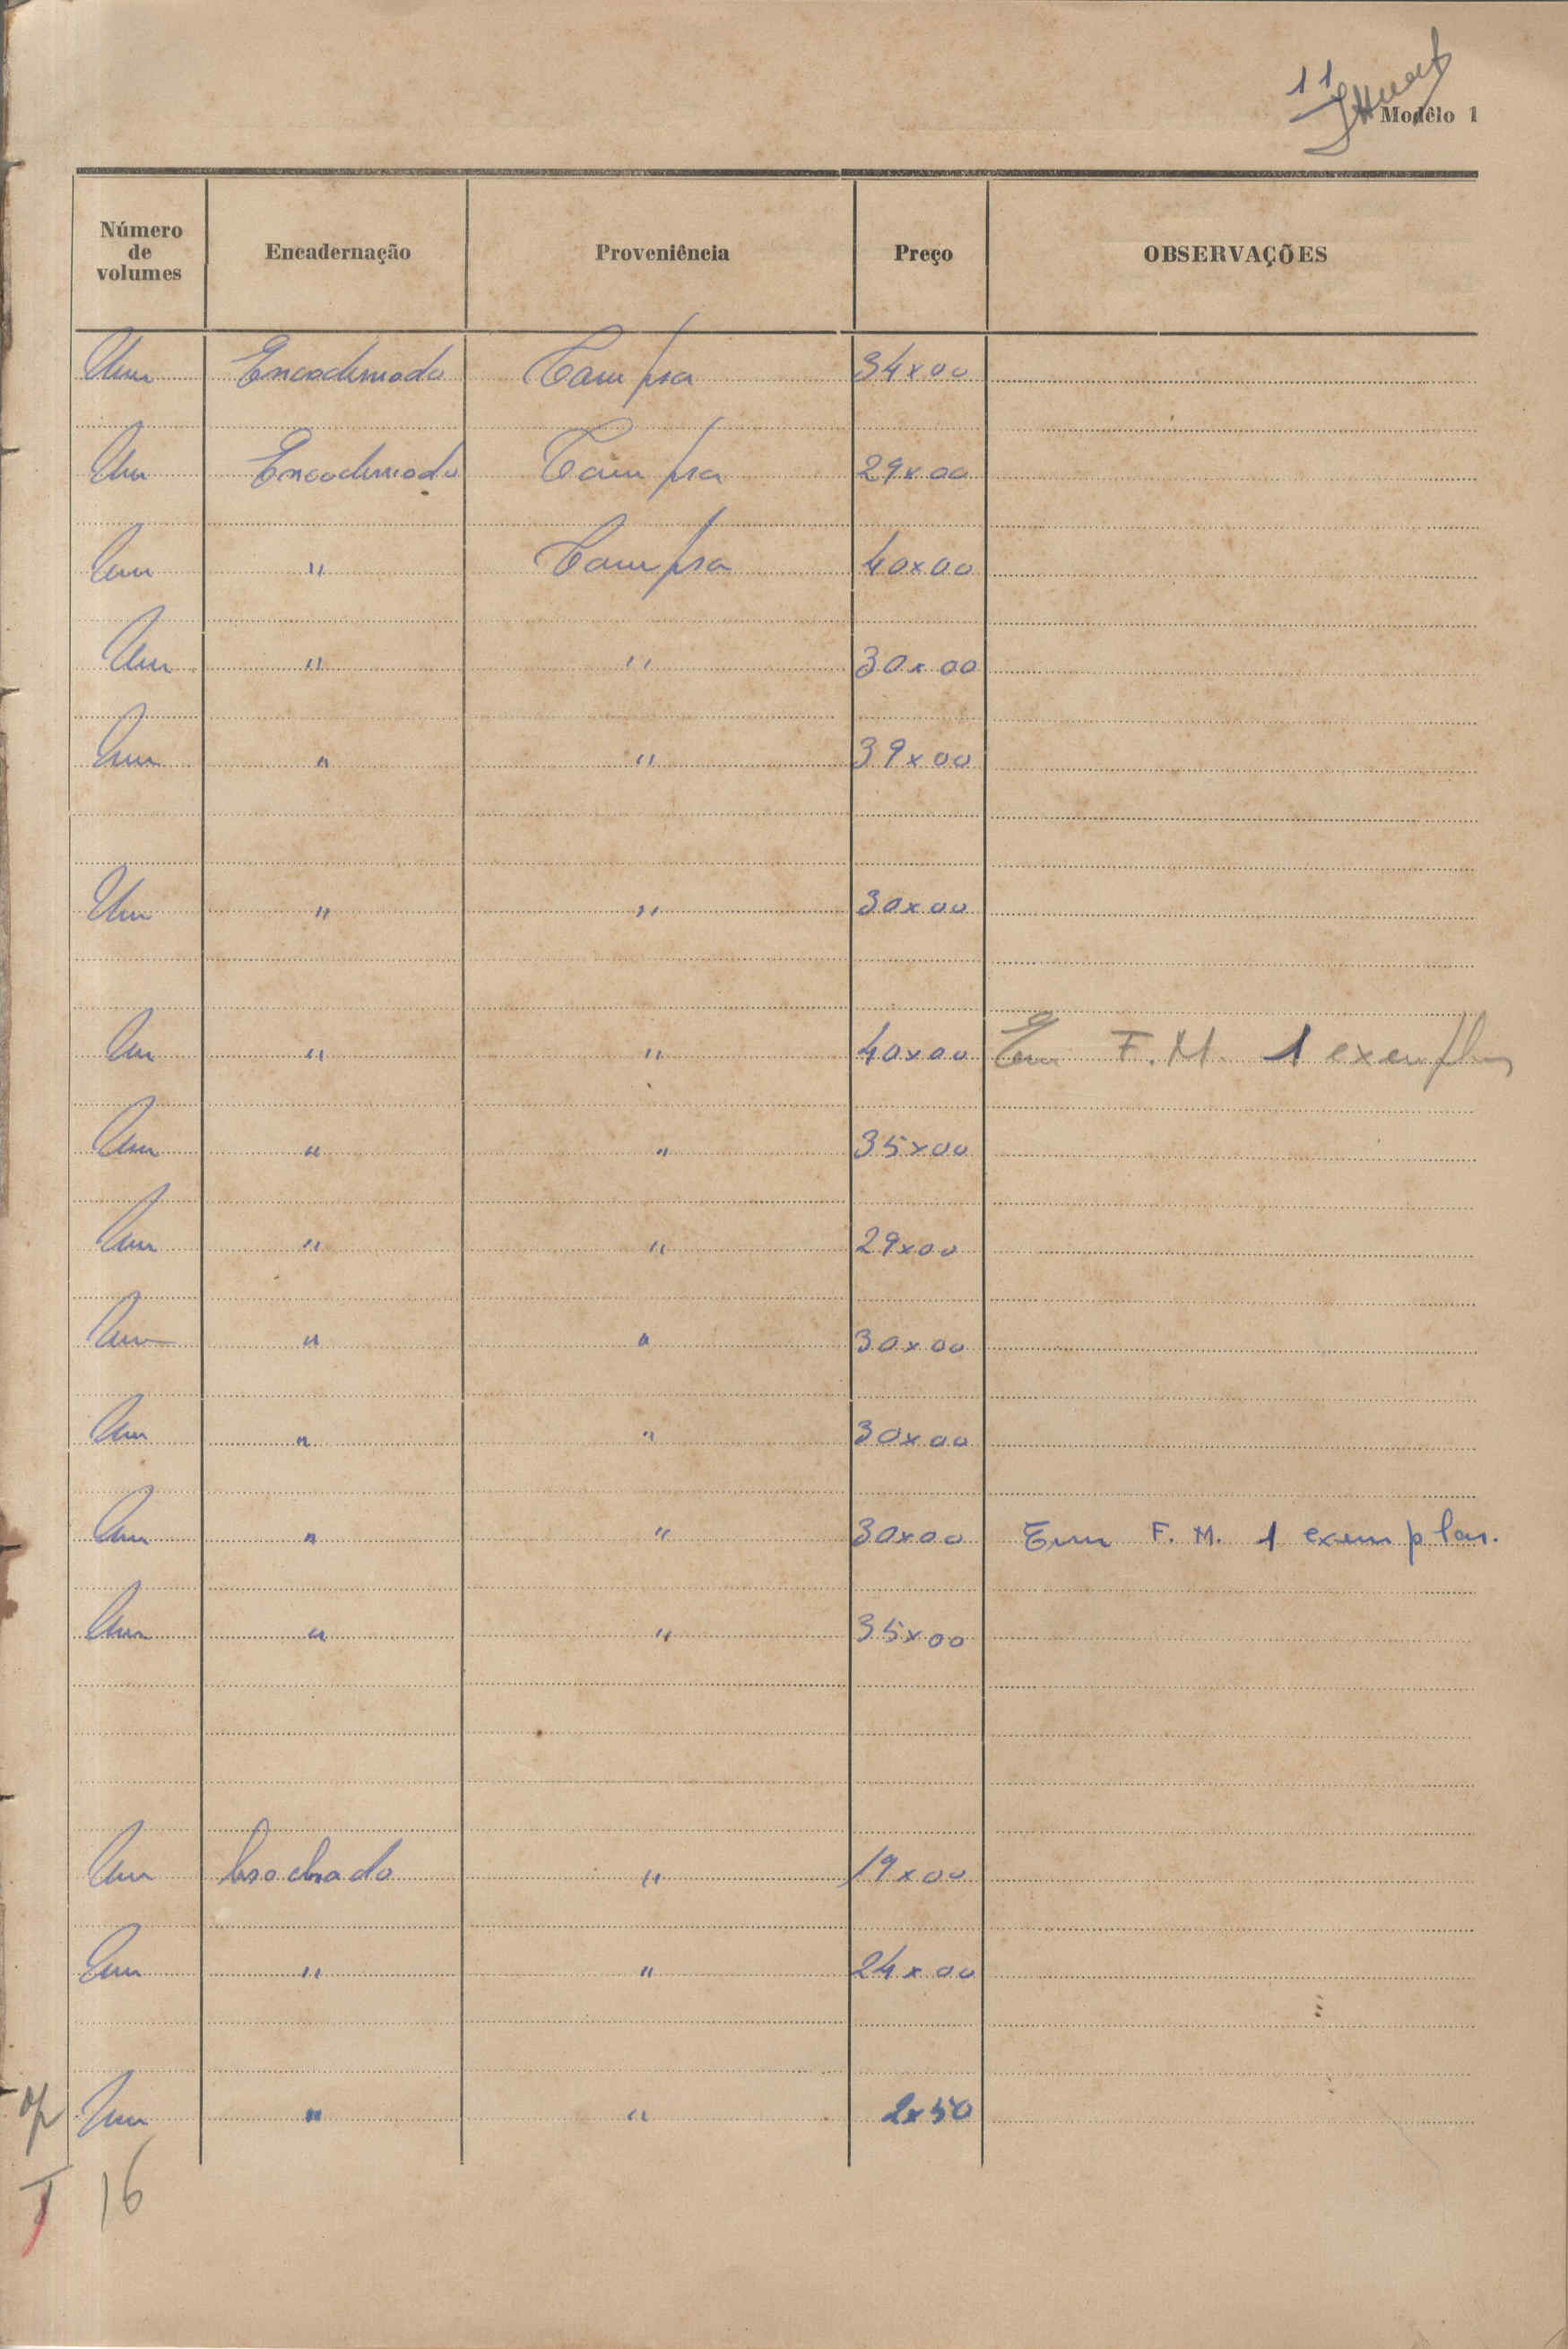 11
Modêlo 1
Número de volumes Encadernação Proveniência Preço OBSERVAÇÕES
Um Encadernado Compra 34x00
Um Encadernado Compra 29x00
Um " Compra 40x00
Um " " 30x00
Um " " 39x00
Um " " 30x00
Um " " 40x00 Em F.M. 1 exemplar
Um " " 35x00
Um " " 29x00
Um " " 30x00
Um " " 30x00
Um " " 30x00 Em F. M. 1 exemplar.
Um " " 35x00
Um brochado " 19x00
Um " " 24x00
Um " " 2x50
T 16